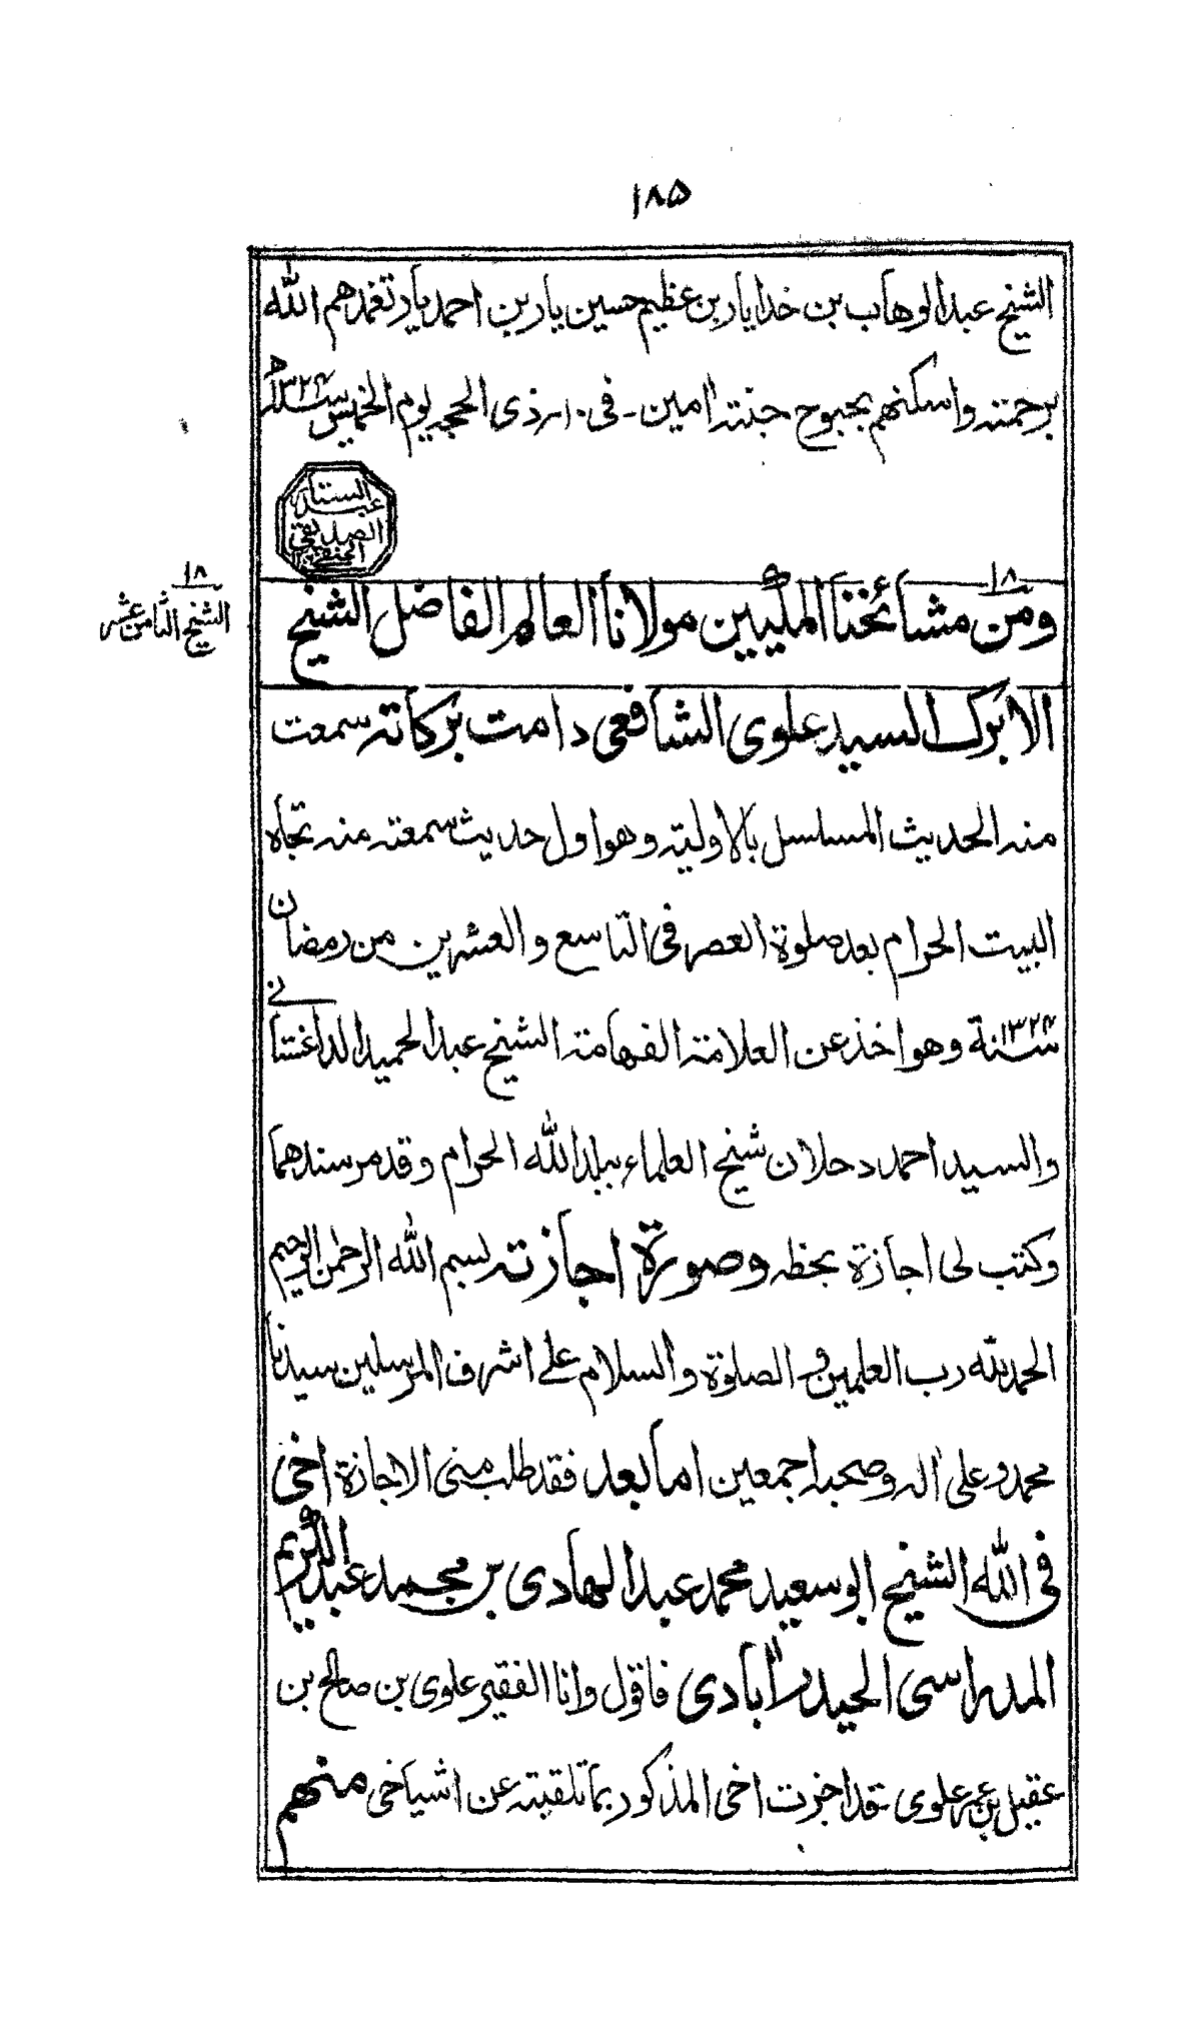 ١٨۵
الشيخ عبد الوهاب بن خدايار بن عظيم حسين يار بن احمد يار تغمدهم الله
برحمته واسكنهم بحبوح جنته امين - فى ١٠ ذى الحجه يوم الخميس سنه ١٣٢٤ه
عبد الستار
الصديقى
الحنفى
١٨
١٨
الشيخ الثامن عشر
ومن مشائخنا المكيين مولانا العالم الفاضل الشيخ
الابرك السيد علوى الشافعى دامت بركاته سمعت
منه الحديث المسلسل بالاوليته وهو اول حديث سمعته منه تجاه
البيت الحرام بعد صلوة العصر فى التاسع والعشرين من رمضان
سنة ١٣٢٤ وهو اخذ عن العلامة الفهامة الشيخ عبد الحميد الداغستانى
والسيد احمد دحلان شيخ العلماء ببلد الله الحرام وقد مر سندهما
وكتب لى اجازة بخطه وصورة اجازته بسم الله الرحمن الرحيم
الحمد لله رب العلمين و الصلوة والسلام على اشرف المرسلين سيدنا
محمد وعلى اله وصحبه اجمعين اما بعد فقد طلب منى الاجازة اخى
فى الله الشيخ ابو سعيد محمد عبد الهادى بن محمد عبد الكريم
المدراسى الحيدرابادى فاقول وانا الفقير علوى بن صالح بن
عقيل بن علوى قد اجزت اخى المذكور بما تلقيته عن اشياخى منهم